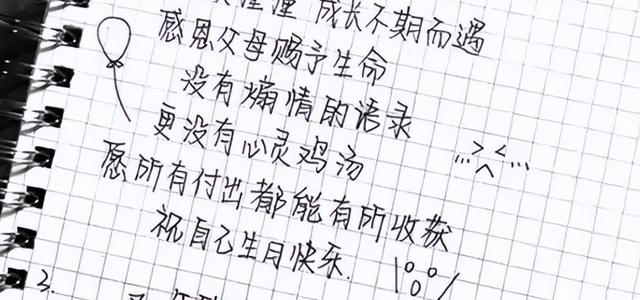 成长不期而遇
感恩父母赐予生命
没有煽情的语录
更没有心灵鸡汤
愿所有付出都能有所收获
祝自己生日快乐.
3.